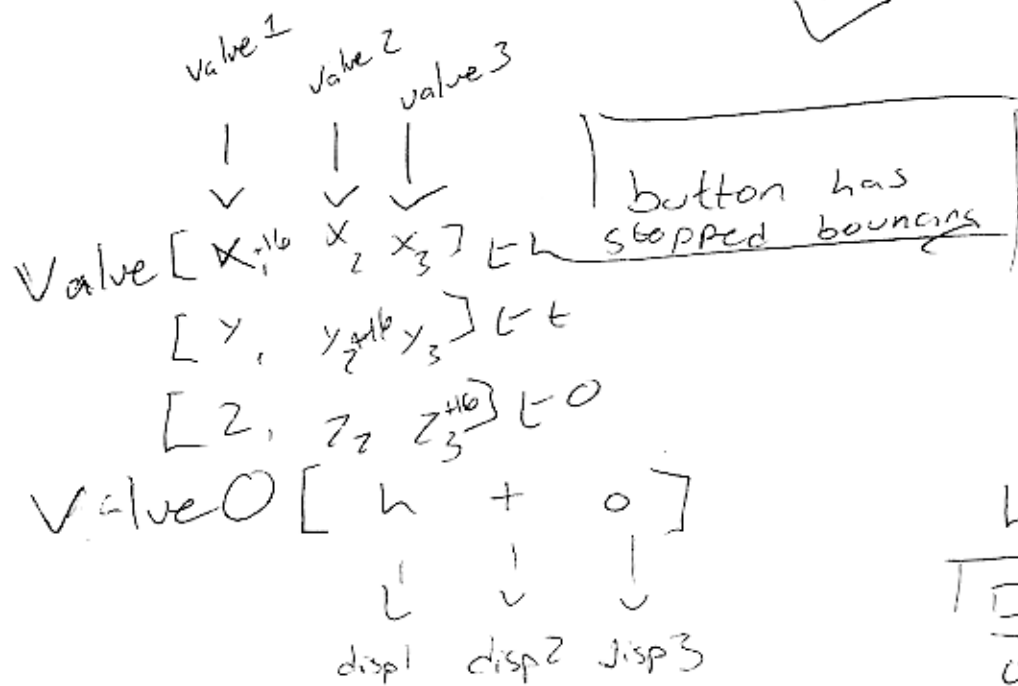 value 1
value 2
value 3
button has
stopped bouncing
Value [ X₁+16 X₂ X₃ ] ← h
[ Y₁ Y₂+16 Y₃ ] ← t
[ Z₁ Z₂ Z₃+16 ] ← 0
Value0 [ h t o ]
disp1 disp2 disp3